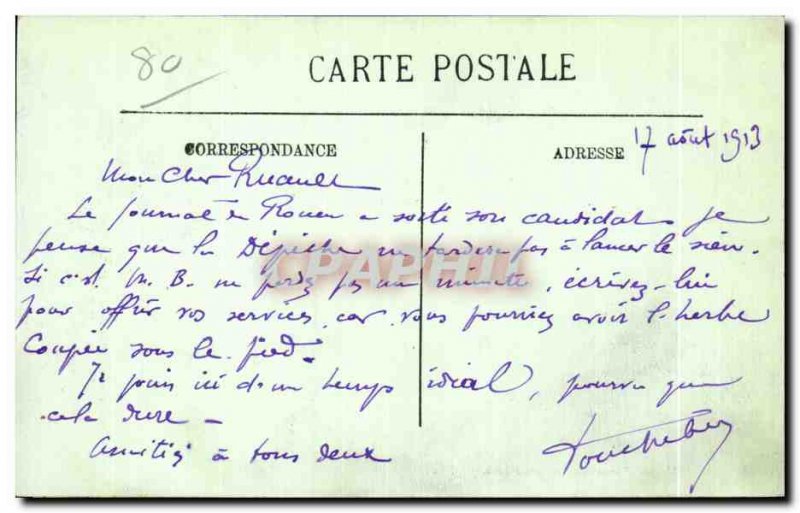 80
CARTE POSTALE
CORRESPONDANCE
ADRESSE
17 août 1913
Mon Cher Ruault
Le Journal de Rouen a sorti son candidat. Je
pense que la Dépêche ne tardera pas à lancer le sien.
Si c'est M. B. ne perdez pas une minute, écrivez-lui
pour offrir vos services, car vous pourriez avoir l'herbe
coupée sous le pied.
Je jouis ici d'un temps idéal, pourvu que
cela dure -
Amitiés à tous deux
CPARAMA